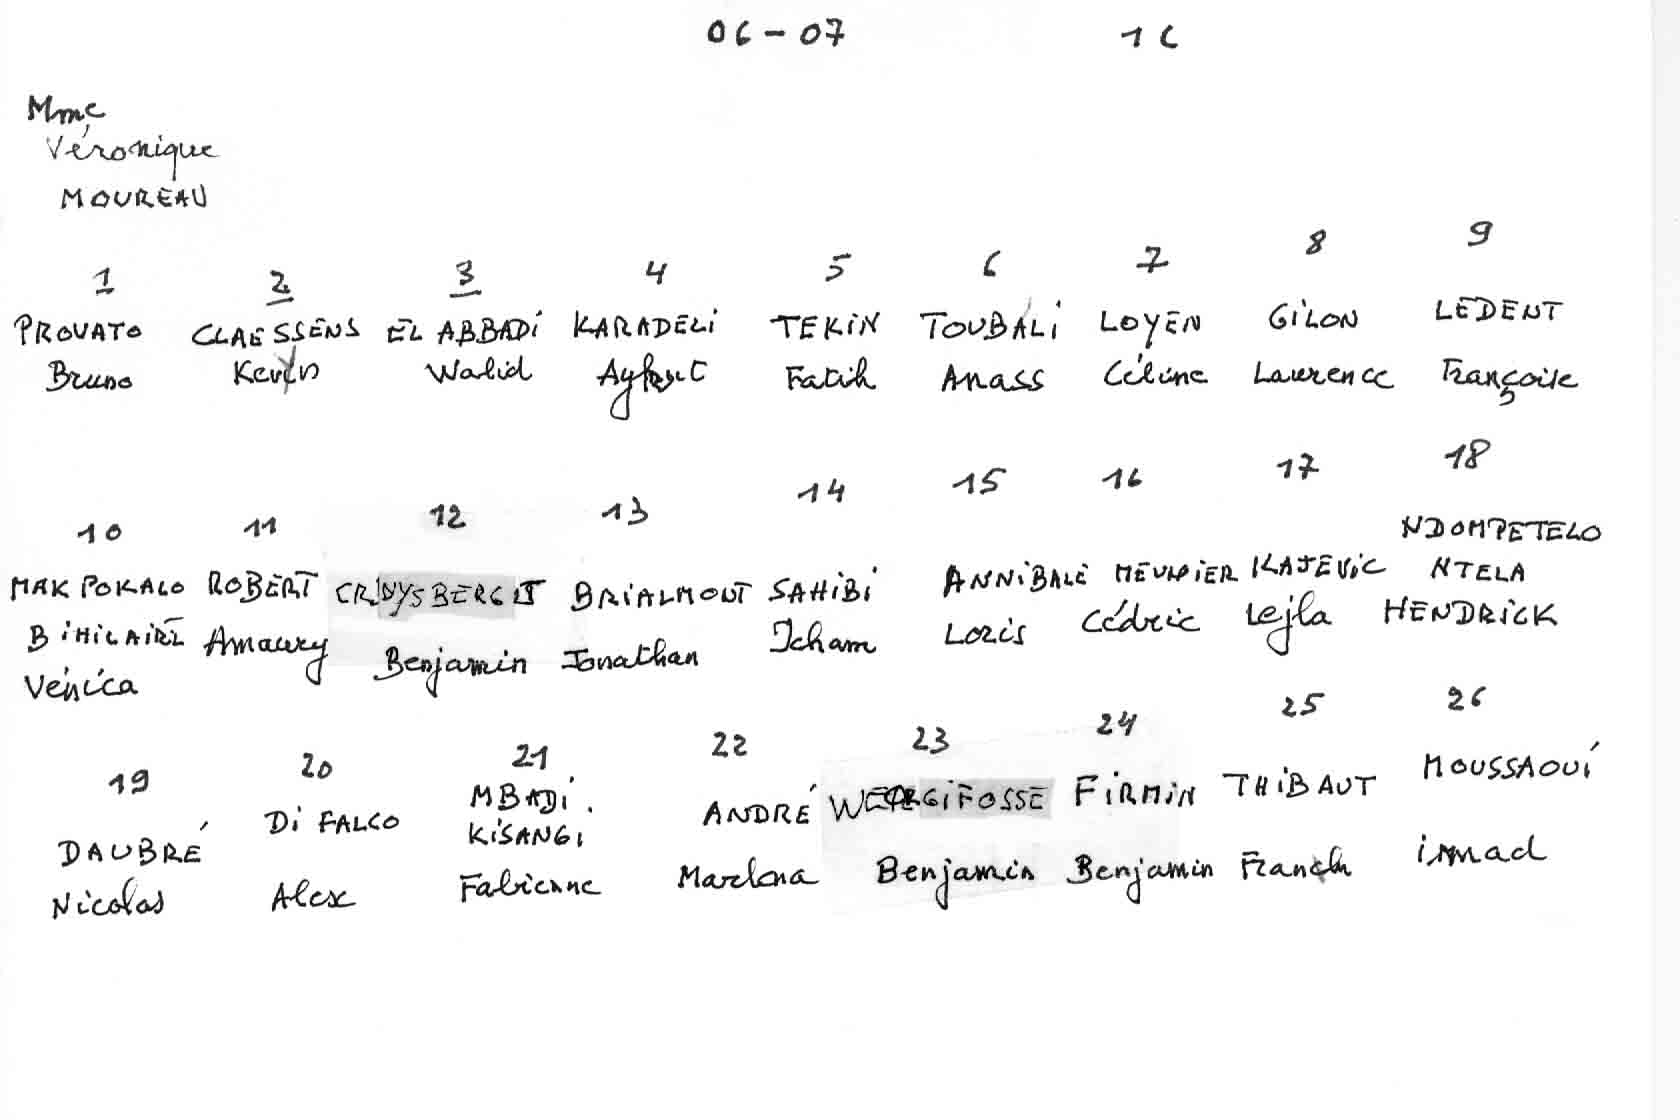 06-07 1C
Mme
Véronique
MOUREAU
1 2 3 4 5 6 7 8 9
PROVATO CLAESSENS EL ABBADi KARADELi TEKiN TOUBALi LOYEN GiLON LEDENT
Bruno Kevyn Walid Fatih Anass Céline Laurence Françoise
10 11 12 13 14 15 16 17 18
MAKPOKALO ROBERT BRiALMONT SAHiBi ANNiBALE MEUNIER KAJEViC NDOMPETELO
NTELA
BiHiLAIRE Amaury Benjamin Jonathan Icham Loris Cédric Lejla HENDRiCK
Vénica
19 20 21 22 23 24 25 26
DAUBRÉ Di FALCO MBADi ANDRÉ FiRMiN THiBAUT MOUSSAOUi
KiSANGi
Nicolas Alex Fabienne Benjamin Benjamin Franck imad